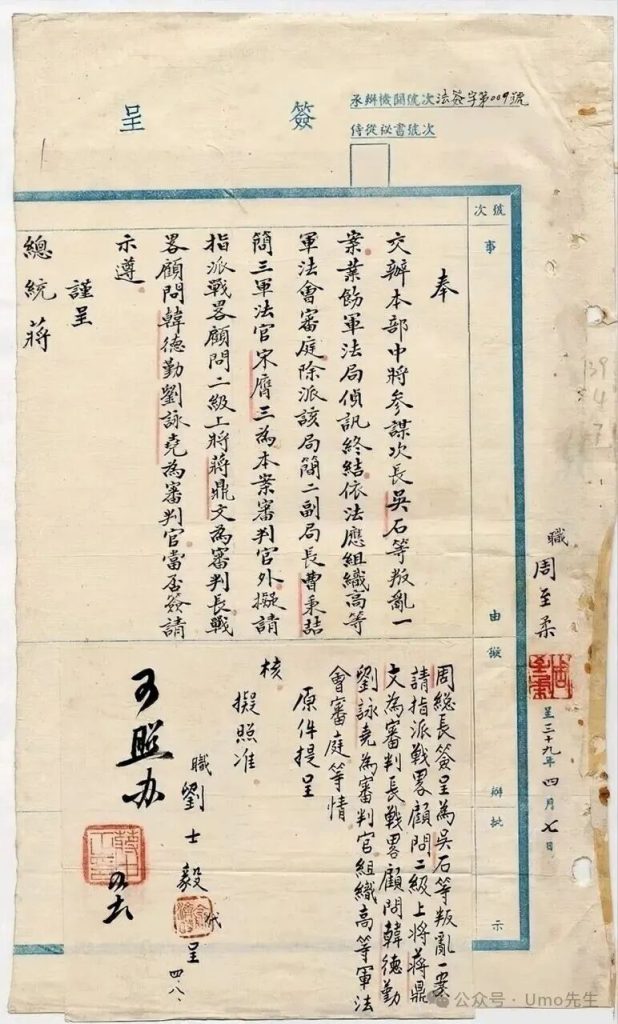 承辦機關號次法簽字第009號
侍從秘書號次
簽呈
職周至柔
呈三十九年四月七日
號次
事由擬辦批示
奉
交辦本部中將參謀次長吳石等叛亂一
案業飭軍法局偵訊終結依法應組織高等
軍法會審庭除派該局簡二副局長曹秉喆
簡三軍法官宋膺三為本案審判官外擬請
指派戰畧顧問二級上將蔣鼎文為審判長戰
畧顧問韓德勤劉詠堯為審判官當否簽請
示遵
謹呈
總統蔣
周總長簽呈為吳石等叛亂一案
請指派戰畧顧問二級上將蔣鼎
文為審判長戰畧顧問韓德勤
劉詠堯為審判官組織高等軍法
會審庭等情
原件提呈
核
擬照准
職劉士毅代呈 四、八
可照办
公众号 · Umo先生